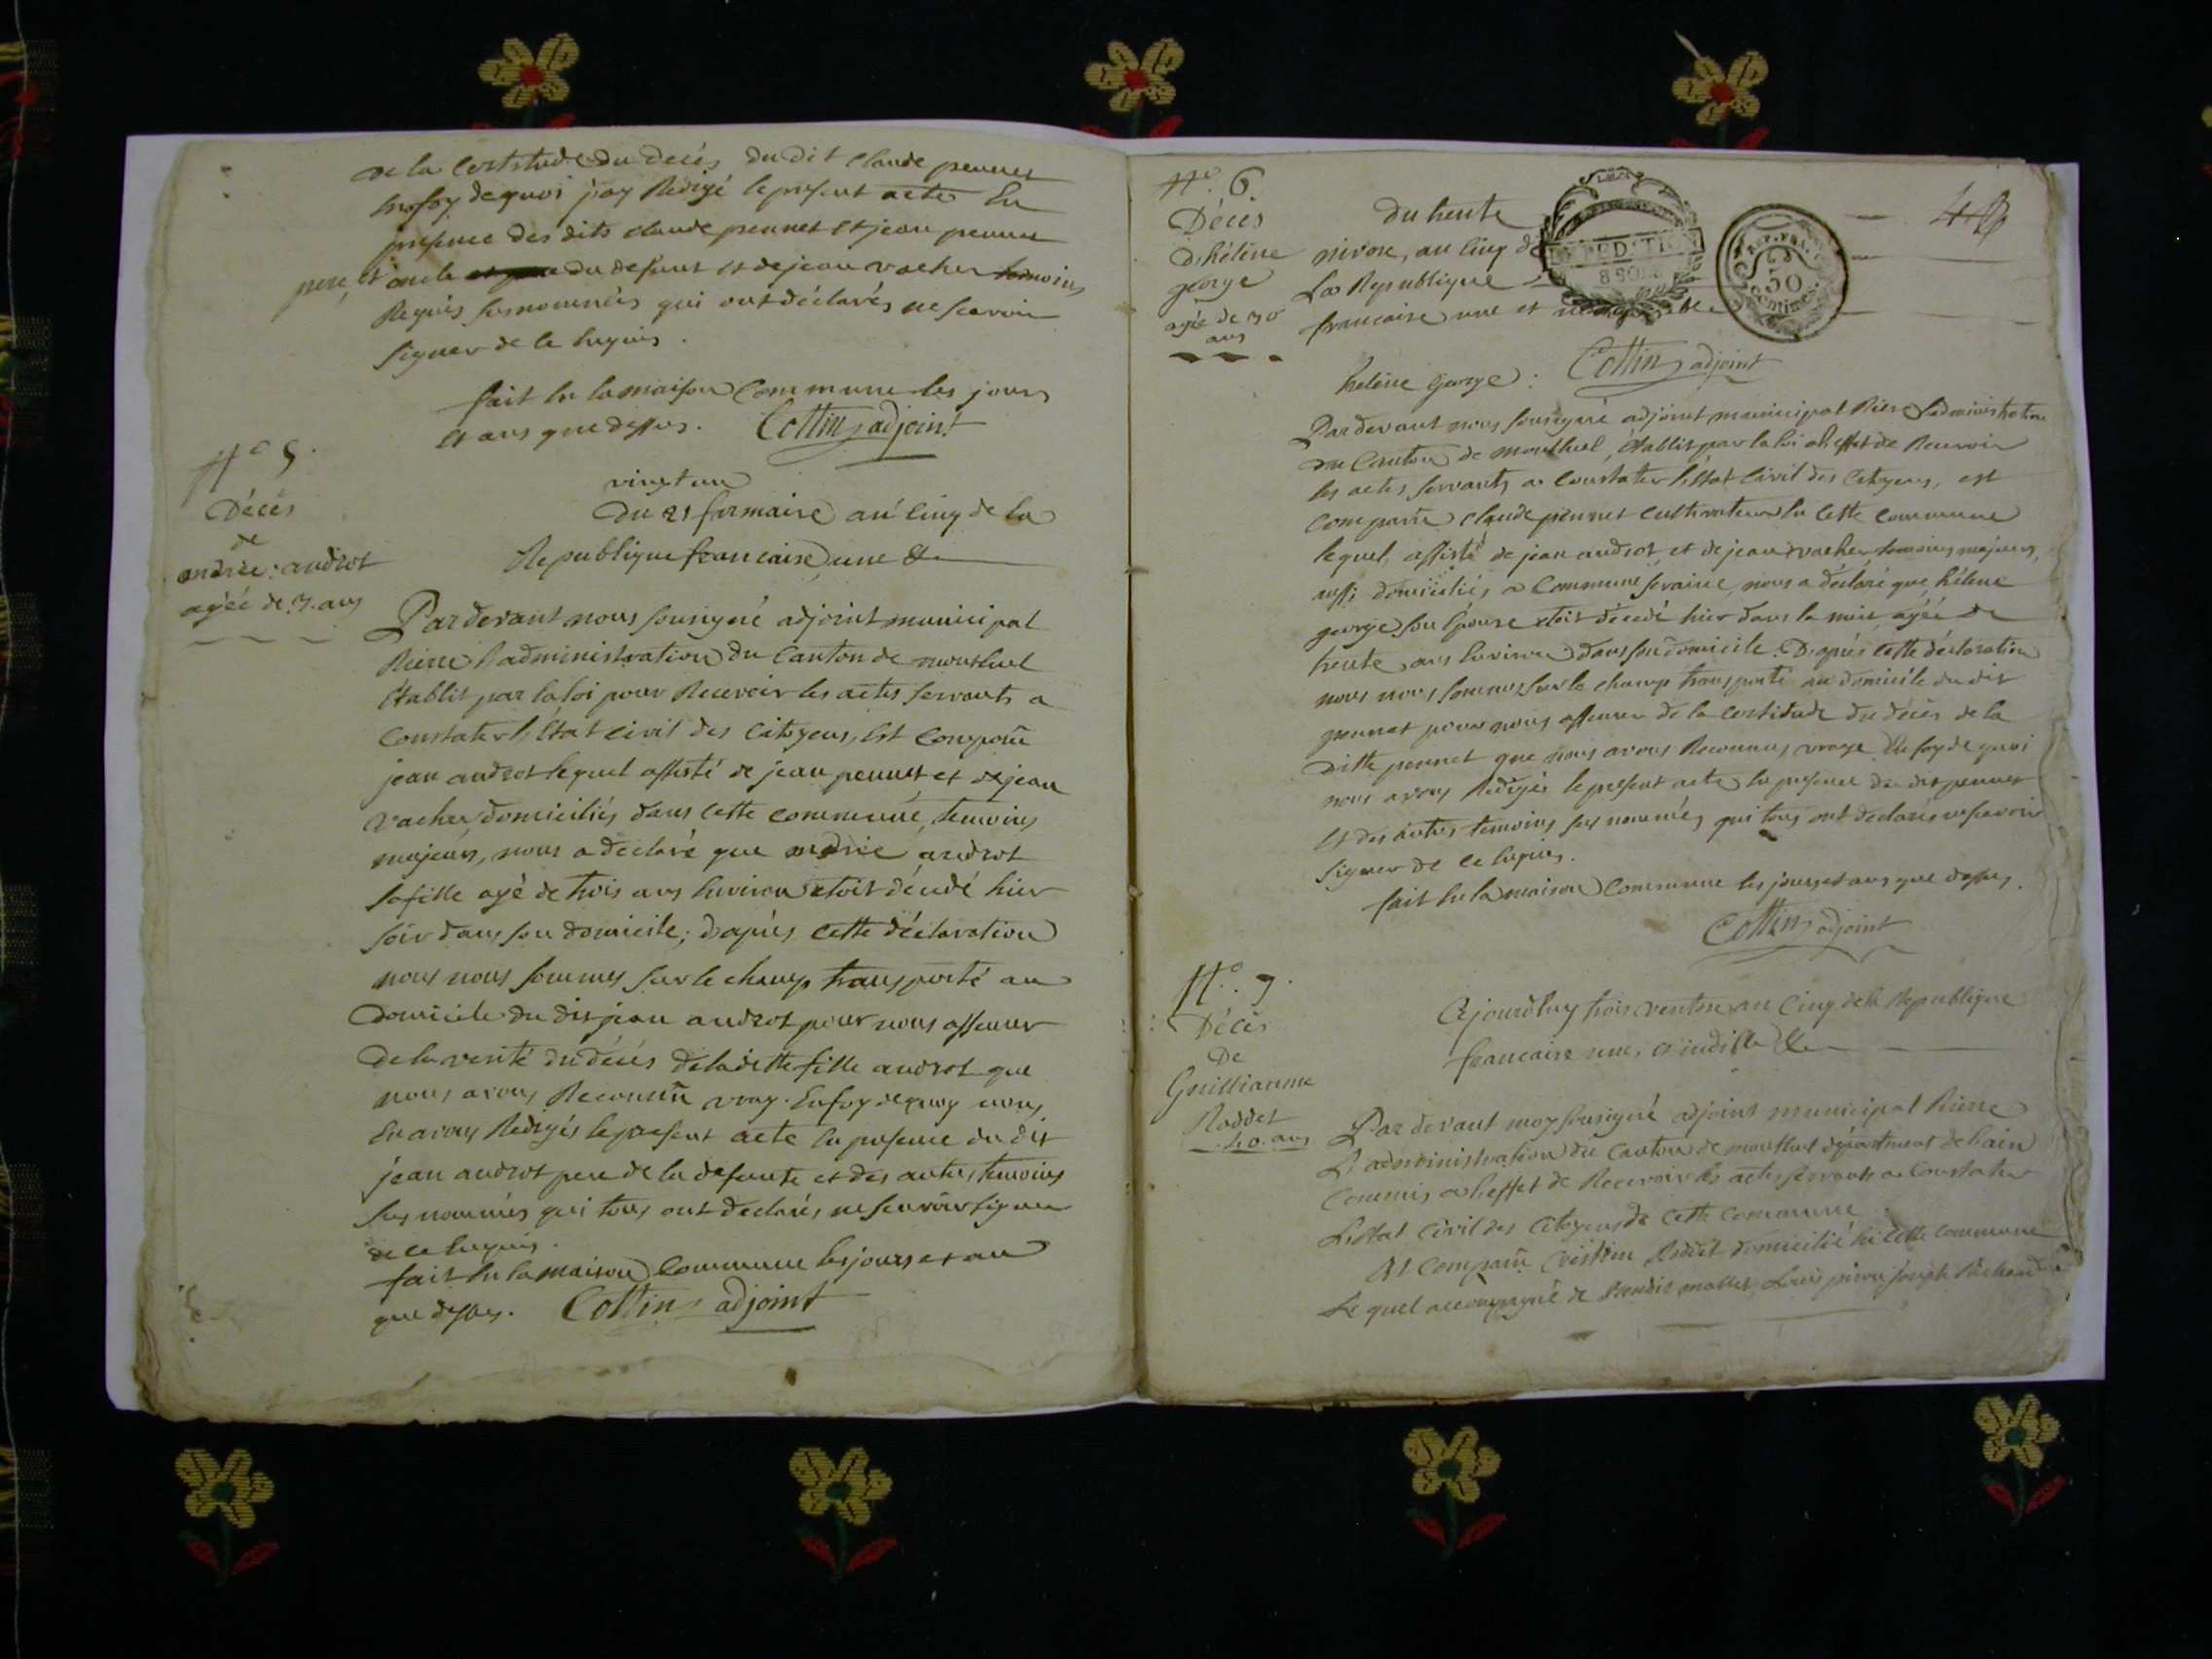 de la Certitude du decés du dit claude pennet
En foy de quoi j'ay Redigé le present acte En
presence des dits claude pennet et jean pennet
pere, et oncle du defunt et de jean vacher temoins
Requis susnommés qui ont déclarés ne scavoir
signer de ce Enquis.
fait En la maison Commune les jours
et ans que dessus. Cottin adjoint
N° 5.
Décés
de
andrée androt
agée de 3. ans
vingt un
Du 21 frimaire an Cinq de la
Republique francaise une &
Par devant nous soussigné adjoint municipal
Riere l'administration du Canton de montluel
Etablit par la loi pour Recevoir les actes servants a
Constater l'Etat civil des Citoyens, Est Comparu
jean androt lequel assisté de jean pennet et de jean
vacher domiciliés dans cette commune, temoins
majeurs, nous a declaré que andrée androt
sa fille agé de trois ans Environ etoit décedé hier
soir dans son domicile; d'aprés cette déclaration
nous nous sommes sur le champ transporté au
Domicile du dit jean androt pour nous assurer
De la verité du décés de la ditte fille androt que
nous avons Reconnu vray. En foy de quoy nous
En avons Redigés le present acte En presence du dit
jean androt pere de la defunte et des autres temoins
sus nommés qui tous ont declarés ne scavoir signer
de ce Enquis.
fait En la maison Commune les jours et an
que dessus. Cottin adjoint
N°. 6.
Décés
D'hélène
george
agée de 30
ans
48
du trente
nivose, an Cinq de
La Republique
francaise une et
EXPEDITION
REP. FRA.
50
centimes
helene george: Cottin adjoint
Par devant nous soussigné adjoint municipal Riere l'administration
du Canton de montluel, Etablit par la loi a l'effet de Recevoir
les actes servants a Constater l'Etat Civil des Citoyens, est
Comparu claude pennet cultivateur En cette Commune
lequel, assisté de jean androt et de jean vacher temoins majeurs,
aussi domiciliés a Commune nous a déclaré que hélene
george son Epouse etoit décedé hier dans la nuit, agée de
trente ans Environ dans son domicile. D'aprés cette déclaration
nous nous sommes sur le champ transporté au domicile du dit
pennet pour nous assurer de la certitude du décés de la
ditte pennet que nous avons Reconnus vraye. En foy de quoi
nous avons Redigés le present acte En presence du dit pennet
Et des autres temoins sus nommés qui tous ont declarés ne scavoir
signer de ce Enquis.
fait En la maison Commune les jours et ans que dessus.
Cottin adjoint
N°. 7.
Décés
De
Guilliaume
Roddet
40. ans
Ajourd'huy trois ventose an Cinq de la Republique
francaise une, et indivisible &
Par devant moy soussigné adjoint municipal Riere
L'administration du Canton de montluel département de l'ain
Commis a l'effet de Recevoir les actes servants a Constater
L'Etat Civil des Citoyens de cette Commune
Est Comparu Roddet domicilié En cette Commune
Le quel accompagné de Benoit mollet Louis joseph